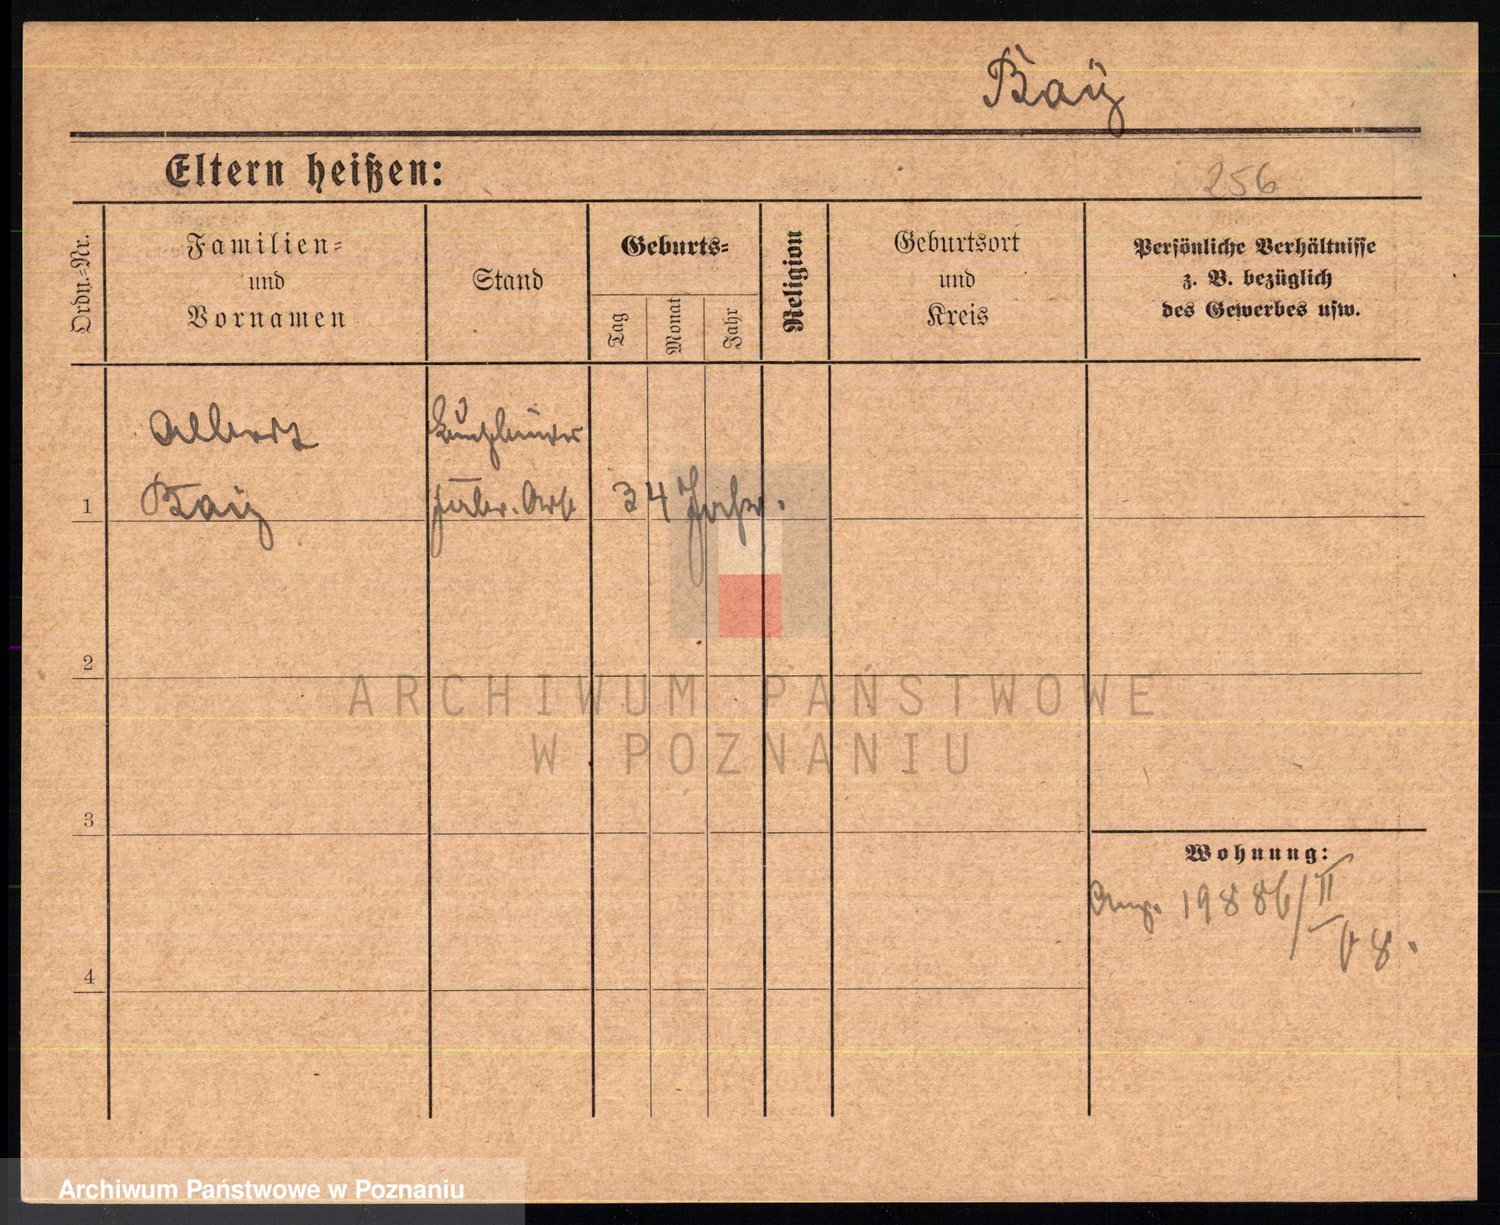 Baÿ
Eltern heißen:
256
Ordn.-Nr.
Familien-
und
Vornamen
Stand
Geburts-
Tag
Monat
Jahr
Religion
Geburtsort
und
Kreis
Persönliche Verhältnisse
z. B. bezüglich
des Gewerbes usw.
Albert
Baÿ
34 Jahr.
1
2
3
4
Wohnung:
19886/II
08.
ARCHIWUM PAŃSTWOWE
W POZNANIU
Archiwum Państwowe w Poznaniu